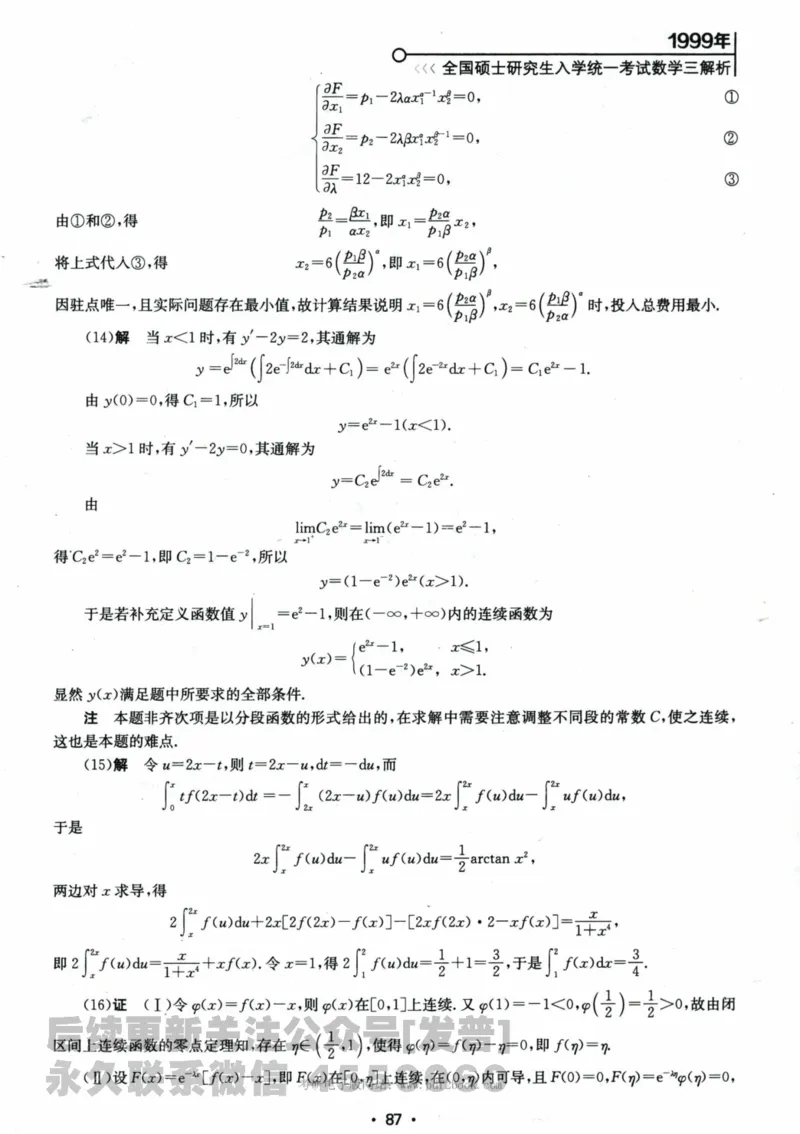 1999年
<<< 全国硕士研究生入学统一考试数学三解析
∂F/∂x₁=p₁−2λαx₁^(α−1)x₂^β=0, ①
∂F/∂x₂=p₂−2λβx₁^αx₂^(β−1)=0, ②
∂F/∂λ=12−2x₁^αx₂^β=0, ③
由①和②,得 p₂/p₁=βx₁/αx₂,即 x₁=(p₂α/p₁β)x₂,
将上式代入③,得 x₂=6(p₁β/p₂α)^α,即 x₁=6(p₂α/p₁β)^β,
因驻点唯一,且实际问题存在最小值,故计算结果说明 x₁=6(p₂α/p₁β)^β,x₂=6(p₁β/p₂α)^α 时,投入总费用最小.
(14)解 当 x<1 时,有 y′−2y=2,其通解为
y=e^(∫2dx)(∫2e^(−∫2dx)dx+C₁)=e^(2x)(∫2e^(−2x)dx+C₁)=C₁e^(2x)−1.
由 y(0)=0,得 C₁=1,所以
y=e^(2x)−1(x<1).
当 x>1 时,有 y′−2y=0,其通解为
y=C₂e^(∫2dx)=C₂e^(2x).
由
lim_(x→1⁺)C₂e^(2x)=lim_(x→1⁻)(e^(2x)−1)=e²−1,
得 C₂e²=e²−1,即 C₂=1−e^(−2),所以
y=(1−e^(−2))e^(2x)(x>1).
于是若补充定义函数值 y|_(x=1)=e²−1,则在(−∞,+∞)内的连续函数为
y(x)={e^(2x)−1, x≤1,
(1−e^(−2))e^(2x), x>1.
显然 y(x)满足题中所要求的全部条件.
注 本题非齐次项是以分段函数的形式给出的,在求解中需要注意调整不同段的常数 C,使之连续,
这也是本题的难点.
(15)解 令 u=2x−t,则 t=2x−u,dt=−du,而
∫₀^x tf(2x−t)dt=−∫_(2x)^x (2x−u)f(u)du=2x∫_x^(2x) f(u)du−∫_x^(2x) uf(u)du,
于是
2x∫_x^(2x) f(u)du−∫_x^(2x) uf(u)du=1/2 arctan x²,
两边对 x 求导,得
2∫_x^(2x) f(u)du+2x[2f(2x)−f(x)]−[2xf(2x)·2−xf(x)]=x/(1+x⁴),
即 2∫_x^(2x) f(u)du=x/(1+x⁴)+xf(x).令 x=1,得 2∫₁² f(u)du=1/2+1=3/2,于是∫₁² f(x)dx=3/4.
(16)证 (Ⅰ)令 φ(x)=f(x)−x,则 φ(x)在[0,1]上连续.又 φ(1)=−1<0,φ(1/2)=1/2>0,故由闭
区间上连续函数的零点定理知,存在 η∈(1/2,1),使得 φ(η)=f(η)−η=0,即 f(η)=η.
(Ⅱ)设 F(x)=e^(−λx)[f(x)−x],即 F(x)在[0,η]上连续,在(0,η)内可导,且 F(0)=0,F(η)=e^(−λη)φ(η)=0,
后续更新关注公众号[发普]
永久联系微信
· 87 ·